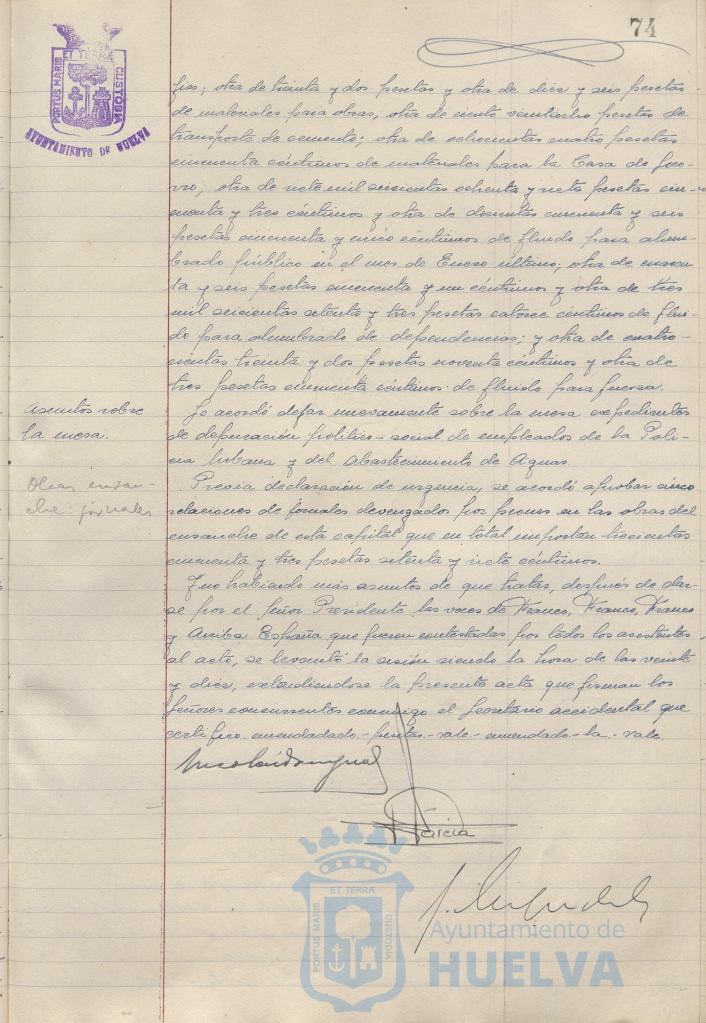 74
PORTUS MARIS ET TERRÆ CUSTODIA
AYUNTAMIENTO DE HUELVA
otra de treinta y dos pesetas y otra de diez y seis pesetas
de materiales para obras, otra de ciento veintiocho pesetas de
transporte de cemento; otra de ochocientas cuatro pesetas
cincuenta céntimos de materiales para la Casa de Soco-
rro, otra de siete mil seiscientas ochenta y siete pesetas cin-
cuenta y tres céntimos y otra de doscientas cincuenta y seis
pesetas cincuenta y cinco céntimos de fluido para alum-
brado público en el mes de Enero último; otra de cuaren-
ta y seis pesetas cincuenta y un céntimos y otra de tres
mil seiscientas setenta y tres pesetas catorce céntimos de flui-
do para alumbrado de dependencias; y otra de cuatro-
cientas treinta y dos pesetas noventa céntimos y otra de
tres pesetas cincuenta céntimos de fluido para fuerza.
Asuntos sobre
la mesa.
Se acordó dejar nuevamente sobre la mesa expedientes
de depuración político-social de empleados de la Poli-
cia Urbana y del Abastecimiento de Aguas.
Obras ensan-
che: jornales
Previa declaración de urgencia, se acordó aprobar cinco
relaciones de jornales devengados por peones en las obras del
ensanche de esta capital que en total importan trescientas
cincuenta y tres pesetas setenta y siete céntimos.
Y no habiendo más asuntos de que tratar, después de dar-
se por el Señor Presidente las voces de Franco, Franco, Franco
y Arriba España que fueron contestadas por todos los asistentes
al acto, se levantó la sesión siendo la hora de las veinte
y diez, extendiéndose la presente acta que firman los
Señores concurrentes conmigo el Secretario accidental que
certifico. enmendado-pesetas-vale-enmendado-la-vale.
García
PORTUS MARIS ET TERRÆ CUSTODIA
Ayuntamiento de
HUELVA